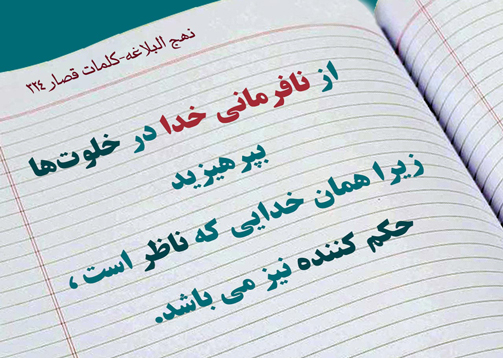 نهج البلاغه-کلمات قصار ۳۲۴
از نافرمانی خدا در خلوت‌ها
بپرهیزید
زیرا همان خدایی که ناظر است،
حکم کننده نیز می باشد.